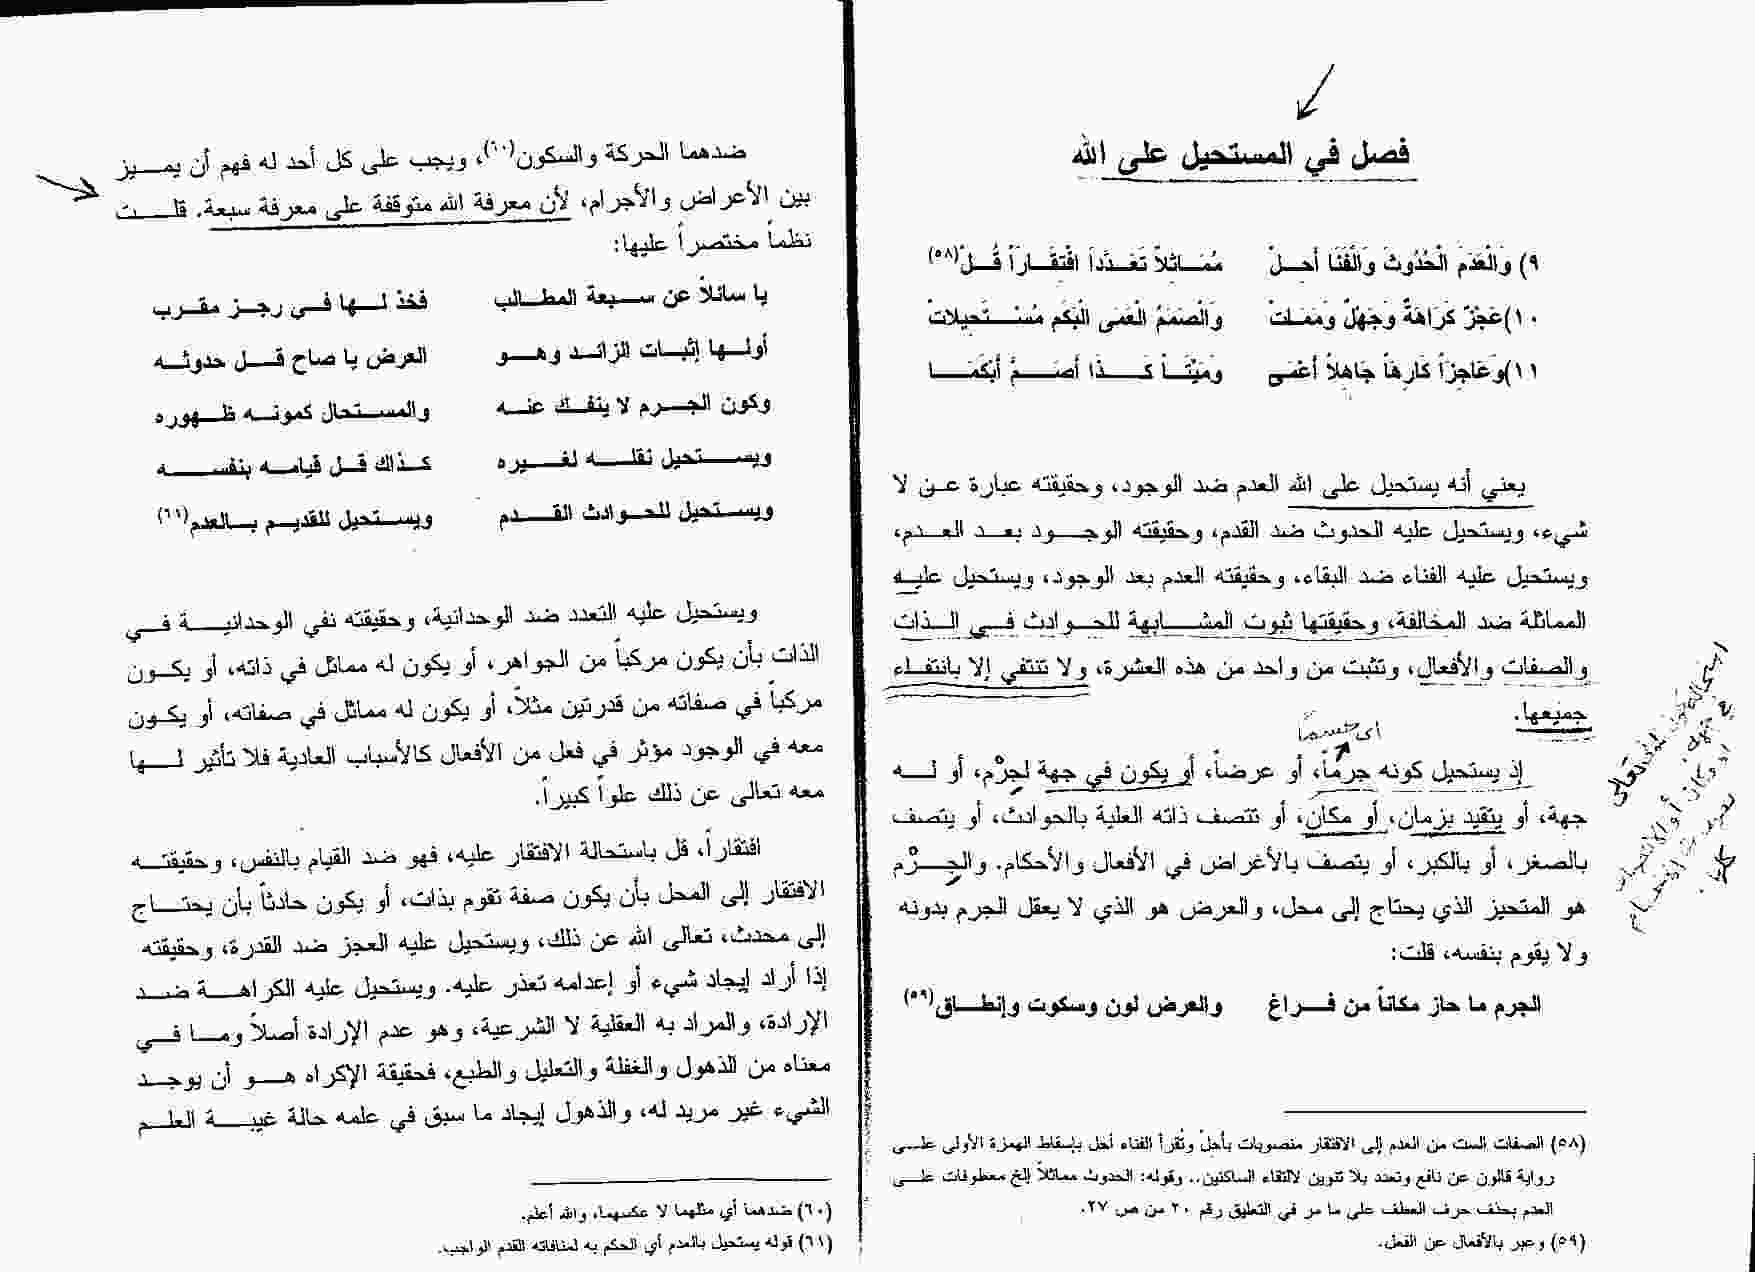 فصل في المستحيل على الله
٩) وَالْعَدَمَ الْحُدُوثَ وَالْفَنَا أَحِلْ مُمَاثَلاً تَعَدَّدَا افْتِقَاراً قُلْ(٥٨)
١٠)عَجْزٌ كَرَاهَةٌ وَجَهْلٌ وَمَمَاتْ وَالصَّمَمُ الْعَمَى الْبَكَمِ مُسْتَحِيلاتْ
١١)وَعَاجِزاً كَارِهاً جَاهِلاً أَعْمَى وَمَيِّتَاً كَذَا أَصَمَّ أَبْكَمَا
يعني أنه يستحيل على الله العدم ضد الوجود، وحقيقته عبارة عن لا
شيء، ويستحيل عليه الحدوث ضد القدم، وحقيقته الوجود بعد العدم،
ويستحيل عليه الفناء ضد البقاء، وحقيقته العدم بعد الوجود، ويستحيل عليه
المماثلة ضد المخالفة، وحقيقتها ثبوت المشابهة للحوادث في الذات
والصفات والأفعال، وتثبت من واحد من هذه العشرة، ولا تنتفي إلا بانتفاء
جميعها.
اى جسما
إذ يستحيل كونه جرماً، أو عرضاً، أو يكون في جهة لجرْم، أو له
جهة، أو يتقيد بزمان، أو مكان، أو تتصف ذاته العلية بالحوادث، أو يتصف
بالصغر، أو بالكبر، أو يتصف بالأغراض في الأفعال والأحكام. والجِرْم
هو المتحيز الذي يحتاج إلى محل، والعرض هو الذي لا يعقل الجرم بدونه
ولا يقوم بنفسه، قلت:
الجرم ما حاز مكاناً من فراغ والعرض لون وسكوت وإنطاق(٥٩)
(٥٨) الصفات الست من العدم إلى الافتقار منصوبات بأحلْ وتُقرأ الفناء أحل بإسقاط الهمزة الأولى على
رواية قالون عن نافع وتعدد بلا تنوين لالتقاء الساكنين.. وقوله: الحدوث مماثلاً إلخ معطوفات على
العدم بحذف حرف العطف على ما مر في التعليق رقم ٢٠ من ص ٢٧.
(٥٩) وعبر بالأفعال عن الفعل.
ضدهما الحركة والسكون(٦٠)، ويجب على كل أحد له فهم أن يميز
بين الأعراض والأجرام، لأن معرفة الله متوقفة على معرفة سبعة. قلت
نظماً مختصراً عليها:
يا سائلاً عن سبعة المطالب فخذ لها في رجز مقرب
أولها إثبات الزائد وهو العرض يا صاح قل حدوثه
وكون الجرم لا ينفك عنه والمستحال كمونه ظهوره
ويستحيل نقله لغيره كذاك قل قيامه بنفسه
ويستحيل للحوادث القدم ويستحيل للقديم بالعدم(٦١)
ويستحيل عليه التعدد ضد الوحدانية، وحقيقته نفي الوحدانية في
الذات بأن يكون مركباً من الجواهر، أو يكون له مماثل في ذاته، أو يكون
مركباً في صفاته من قدرتين مثلاً، أو يكون له مماثل في صفاته، أو يكون
معه في الوجود مؤثر في فعل من الأفعال كالأسباب العادية فلا تأثير لها
معه تعالى عن ذلك علواً كبيراً.
افتقاراً، قل باستحالة الافتقار عليه، فهو ضد القيام بالنفس، وحقيقته
الافتقار إلى المحل بأن يكون صفة تقوم بذات، أو يكون حادثاً بأن يحتاج
إلى محدث، تعالى الله عن ذلك، ويستحيل عليه العجز ضد القدرة، وحقيقته
إذا أراد إيجاد شيء أو إعدامه تعذر عليه. ويستحيل عليه الكراهة ضد
الإرادة، والمراد به العقلية لا الشرعية، وهو عدم الإرادة أصلاً وما في
معناه من الذهول والغفلة والتعليل والطبع، فحقيقة الإكراه هو أن يوجد
الشيء غير مريد له، والذهول إيجاد ما سبق في علمه حالة غيبة العلم
(٦٠) ضدهما أي مثلهما لا عكسهما، والله أعلم.
(٦١) قوله يستحيل بالعدم أي الحكم به لمنافاته القدم الواجب.